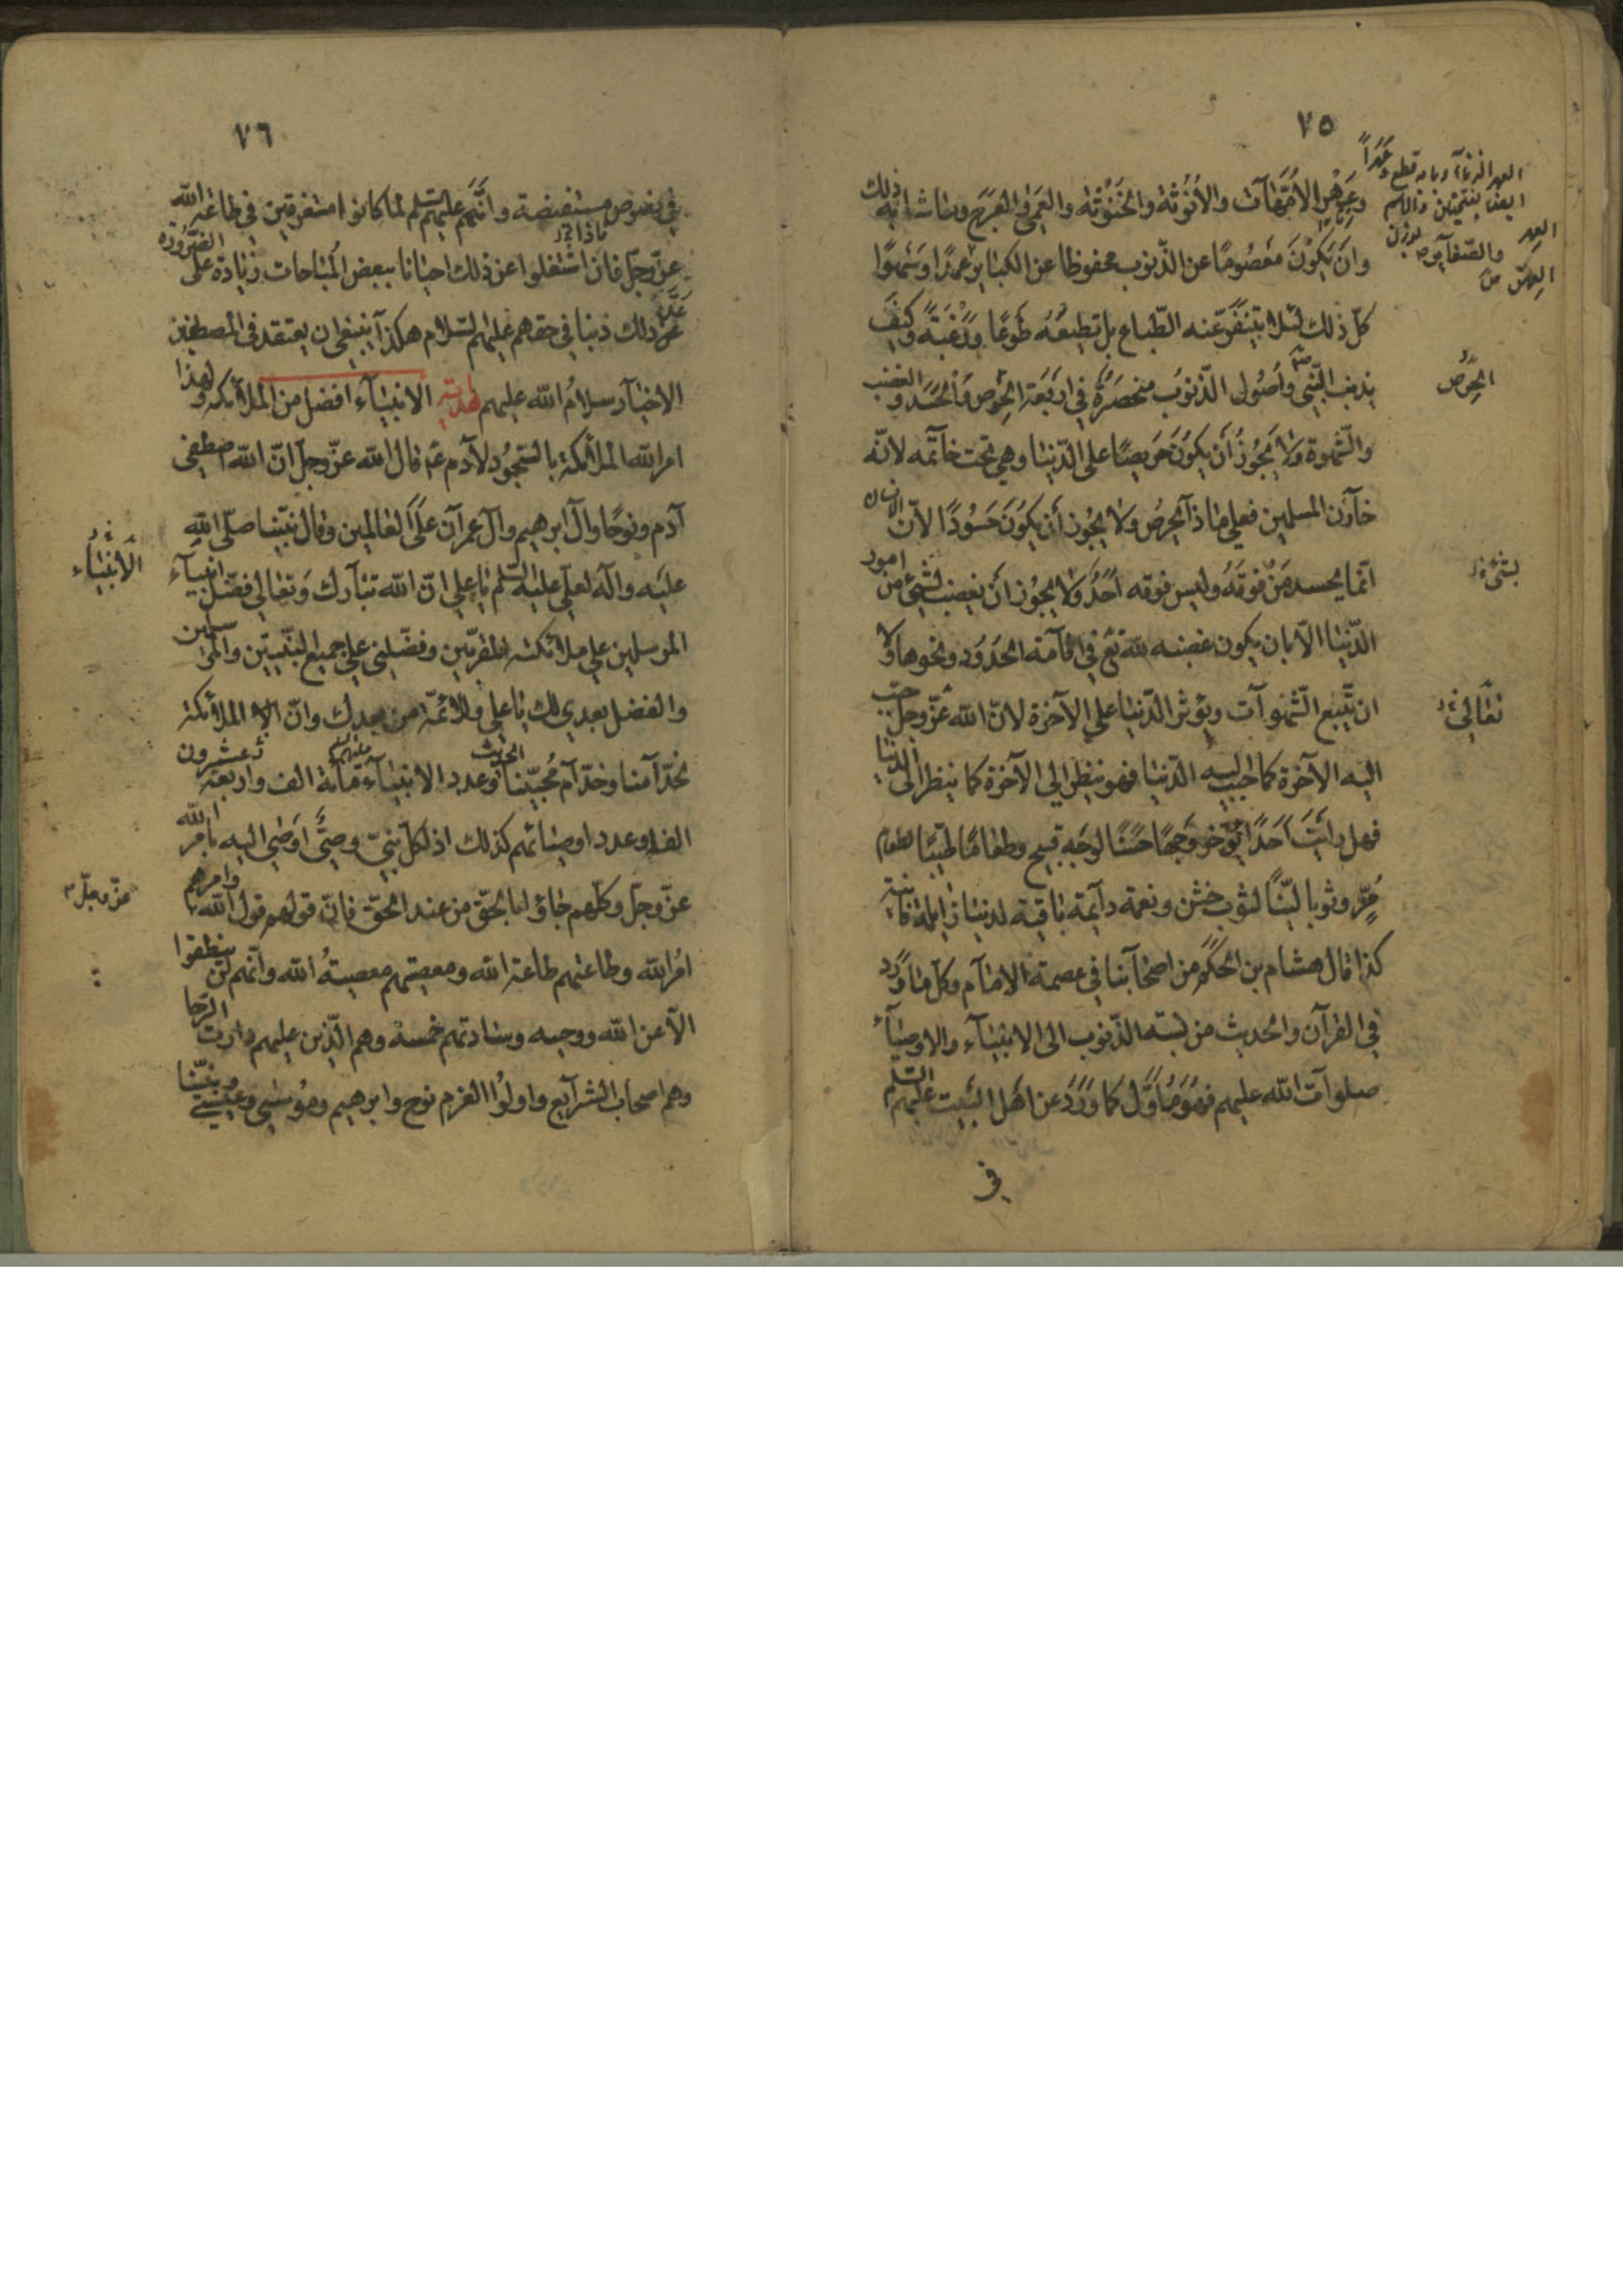 ٧٥
وعهر الأمّهات والأنوثة والخنوثة والعمى والعرج وما شابه ذلك
وان يكون معصومًا عن الذّنوب محفوظا عن الكبائر عمدًا وسهوًا
كلّ ذلك لئلا يتنفّر عنه الطّباع بل تطيعه طوعًا ورغبة وكيف
يذنب النّبي وأصول الذّنوب منحصرة في اربعة الحرص والحسد والغضب
والشّهوة ولا يجوز أن يكون حريصًا على الدّنيا وهي تحت خاتمه لانّه
خازن المسلمين فعلى ماذا يحرص ولا يجوز أن يكون حسودًا لأنّ الانسان
انّما يحسد من فوقه وليس فوقه أحد ولا يجوز أن يغضب لشيئ من امور
الدّنيا الّا بان يكون غضبه لله تع في اقامة الحدود ونحوها ولا
ان يتّبع الشّهوات ويؤثر الدّنيا على الآخرة لانّ الله عزّ وجلّ حبّب
اليه الآخرة كما حبّب اليه الدّنيا فهو ينظر الى الآخرة كما ينظر الى الدّنيا
فهل رأيت أحدًا يؤخر وجهًا حسنًا لوجه قبيح وطعامًا طيّبًا لطعام
مرّ وثوبا ليّنًا لثوب خشن ونعمة دآئمة باقية لدنيا زايلة فانية
كذا قال هشام بن الحكم من اصحابنا في عصمة الامام وكل ما ورد
في القرآن والحديث من نسبة الذّنوب الى الانبيآء والاوصيآء
صلوات الله عليهم فهو مأوّل كما ورد عن اهل البيت عليهم السّلم
في
الحرص
بشئ
تعالى
٧٦
في نصوص مستفيضة وانّهم عليهم السّلم لما كانوا مستغرقين في طاعة الله
عزّ وجلّ فان اشتغلوا عن ذلك احيانا ببعض المباحات زيادة على الضّرورة
عدّ ذلك ذنبا في حقهم عليهم السّلام هكذا ينبغي ان يعتقد في المصطفين
الاخيار سلام الله عليهم هداية الانبيآء افضل من الملائكة ولهذا
امر الله الملائكة بالسّجود لآدم ع قال الله عزّ وجلّ انّ الله اصطفى
آدم ونوحًا وآل ابرهيم وآل عمرآن على العالمين وقال نبيّنا صلّى الله
عليه وآله لعلّي عليه السّلم يا علي انّ الله تبارك وتعالى فضّل انبيآء
المرسلين على ملائكته المقرّبين وفضّلني على جميع النّبيّين والمرسلين
والفضل بعدي لك يا علي وللائمّة من بعدك وانّ الملائكة
لخدّامنا وخدّام محبّينا الحديث وعدد الانبيآء مائة الف واربعة وعشرون
الفا وعدد اوصيائهم كذلك اذ لكلّ نبيّ وصيّ اوصى اليه بامر الله
عزّ وجلّ وكلّهم جاؤا بالحقّ من عند الحقّ فانّ قولهم قول الله وامرهم
امر الله وطاعتهم طاعة الله ومعصيتهم معصية الله وانّهم لن ينطقوا
الّا عن الله ووحيه وسادتهم خمسة وهم الّذين عليهم دارت الرّحا
وهم اصحاب الشرآيع واولوا العزم نوح وابرهيم وموسى وعيسى ونبيّنا
الأنبياء
عزّ وجلّ